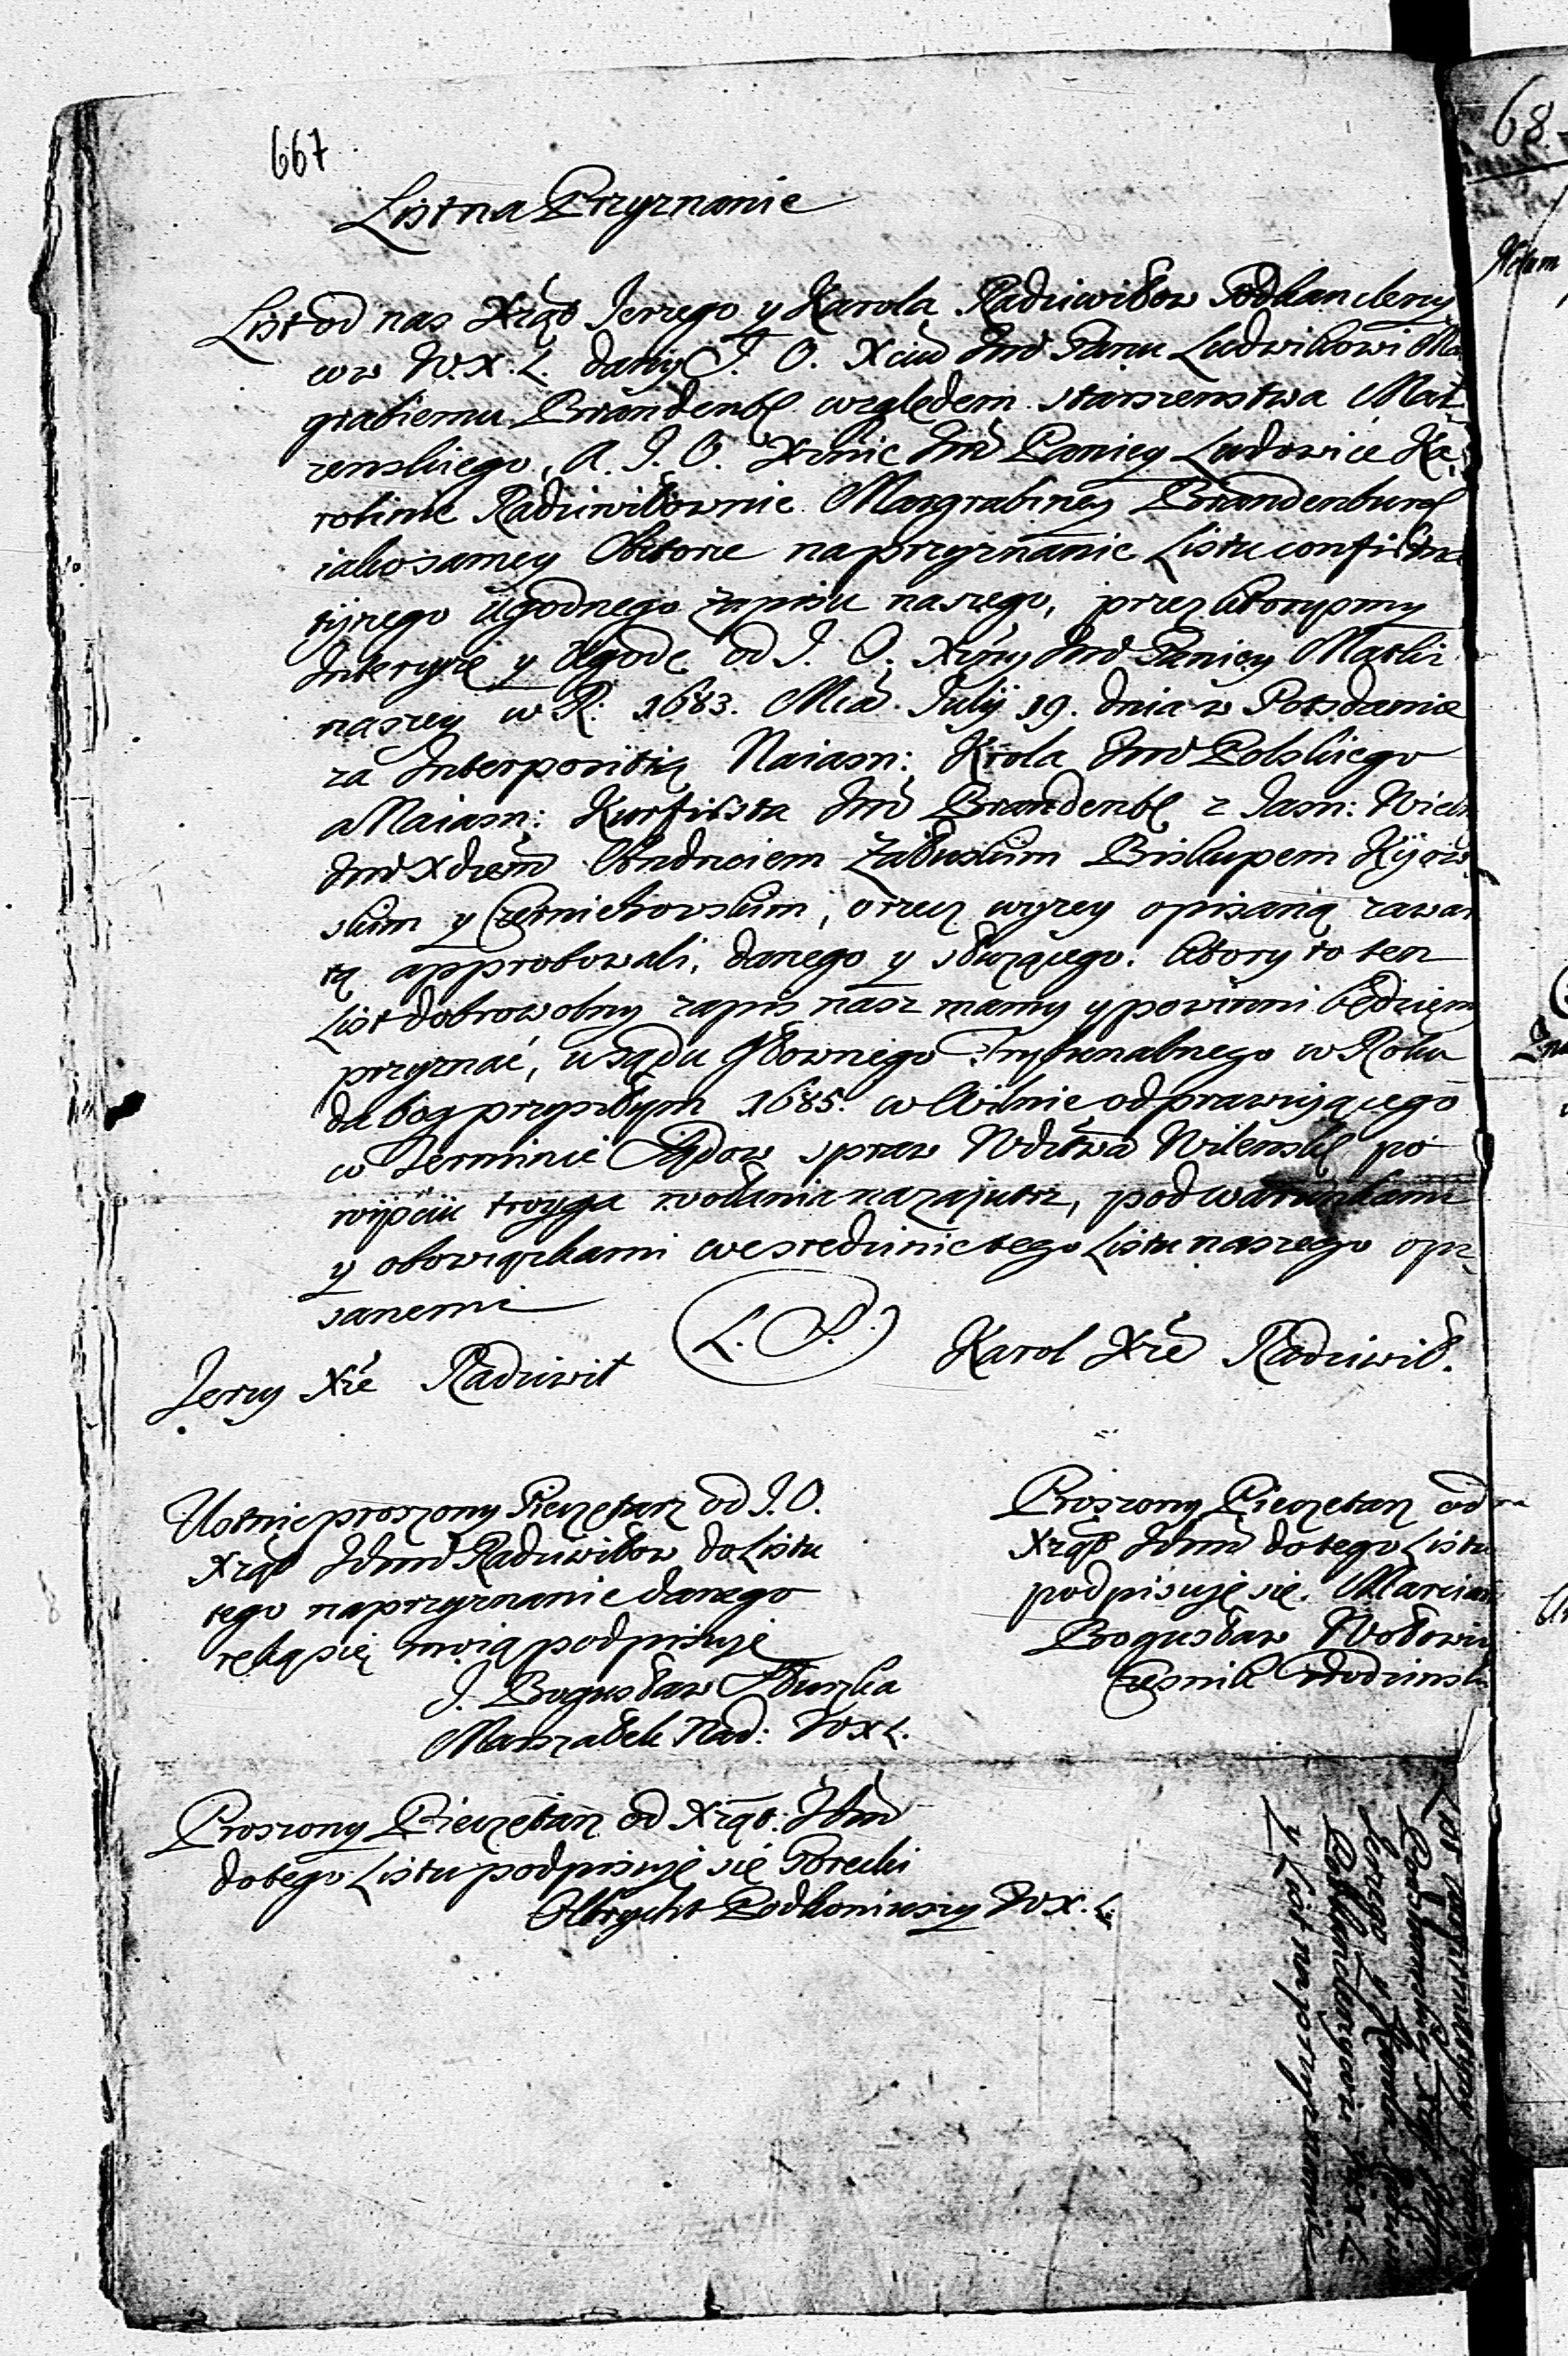 667
List na Przyznanie
List od nas Xżąt Jerzego y Karola Radziwiłłow Podkanclerzy
cow W.X.L. dany J. O. Xciu Jmć Panu Ludwikowi Mar
grabiemu Brandenb. względem starszenstwa Mał
zenskiego, A J. O. Xiżnie Jmć Paniey Ludowice Ka
rolinie Radziwiłłownie Margrabiney Brandenburg
iako samey Aktorce na przyznanie Listu confirma
tijnego ugodnego zapisu naszego, przez ktorysmy
Intercyzę y Ugodę od J. O. Xżny Jmć Paniey Matki
naszey w R. 1683. Mca July 19. dnia w Potsdamie
za Interpositią Naiasn: Krola Jmć Polskiego
a Naiasn: Kurfirsta Jmć Brandenb z Jasn: Wiel
Jmć Xdzem Andrzeiem Załuskim Biskupem Kijow
skim y Czerniehovskim, o rzecz wyzey opisaną zawar
tą approbowali, danego y słuzącego. Ktory to ten
List dobrowolny zapis nasz mamy y powinni będziemy
przyznać, u Sądu Głownego Trybunalnego w Roku
da bog przyszłym 1685. w Wilnie odprawującego
w Terminie Sądow spraw Wdztwa Wilensk po
wyisciu trzyga wołania nazajutrz, pod warunkami
y obowiązkami we srzedzinie tego Listu naszego opi
sanemi
L. S.
Jerzy Xże Radziwił
Karol Xże Radziwił.
Ustnie proszony Pieczętarz od J. O.
Xżąt Ichmć Radziwiłłow do Listu
tego na przyznanie danego
ręką się moią podpisuję
J. Bogusław Słuszka
Marszałek Nad: WXL.
Proszony Pieczetarz od
Xżąt Ichmć do tego Listu
podpisuję się. Marcian
Bogusław Wołowi
Czesnik
Proszony Pieczetarz od Xżąt: Ichmć
do tego Listu podpisuję się Gorecki
Albrycht Podkoniuszy WX.L.
Jerzego y Karola
Podkanclerzycow W.X.L.
y List na przyznanie
68